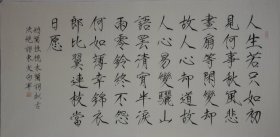 人生若只如初
見何事秋風悲
畫扇等閒變却
故人心却道故
人心易變驪山
語罷清宵半淚
雨零鈴終不怨
何如薄幸錦衣
郎比翼連枝當
日願
納蘭性德木蘭詞擬古
決絕詞柬友